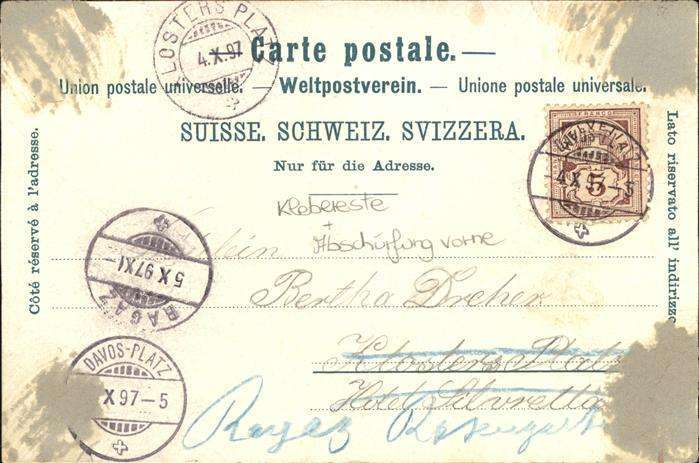 KLOSTERS PLATZ
4.X.97
Carte postale.—
Union postale universelle. — Weltpostverein. — Unione postale universale.
SUISSE. SCHWEIZ. SVIZZERA.
Nur für die Adresse.
Côté réservé à l'adresse.
Lato riservato all' indirizzo
5
4 X 97-5
Klebereste
+
Abschürfung vorne
Bertha Dreher
Klosters Platz
Hotel Silvretta
Ragaz
RAGAZ
5 X 97 XI-
DAVOS-PLATZ
X 97-5